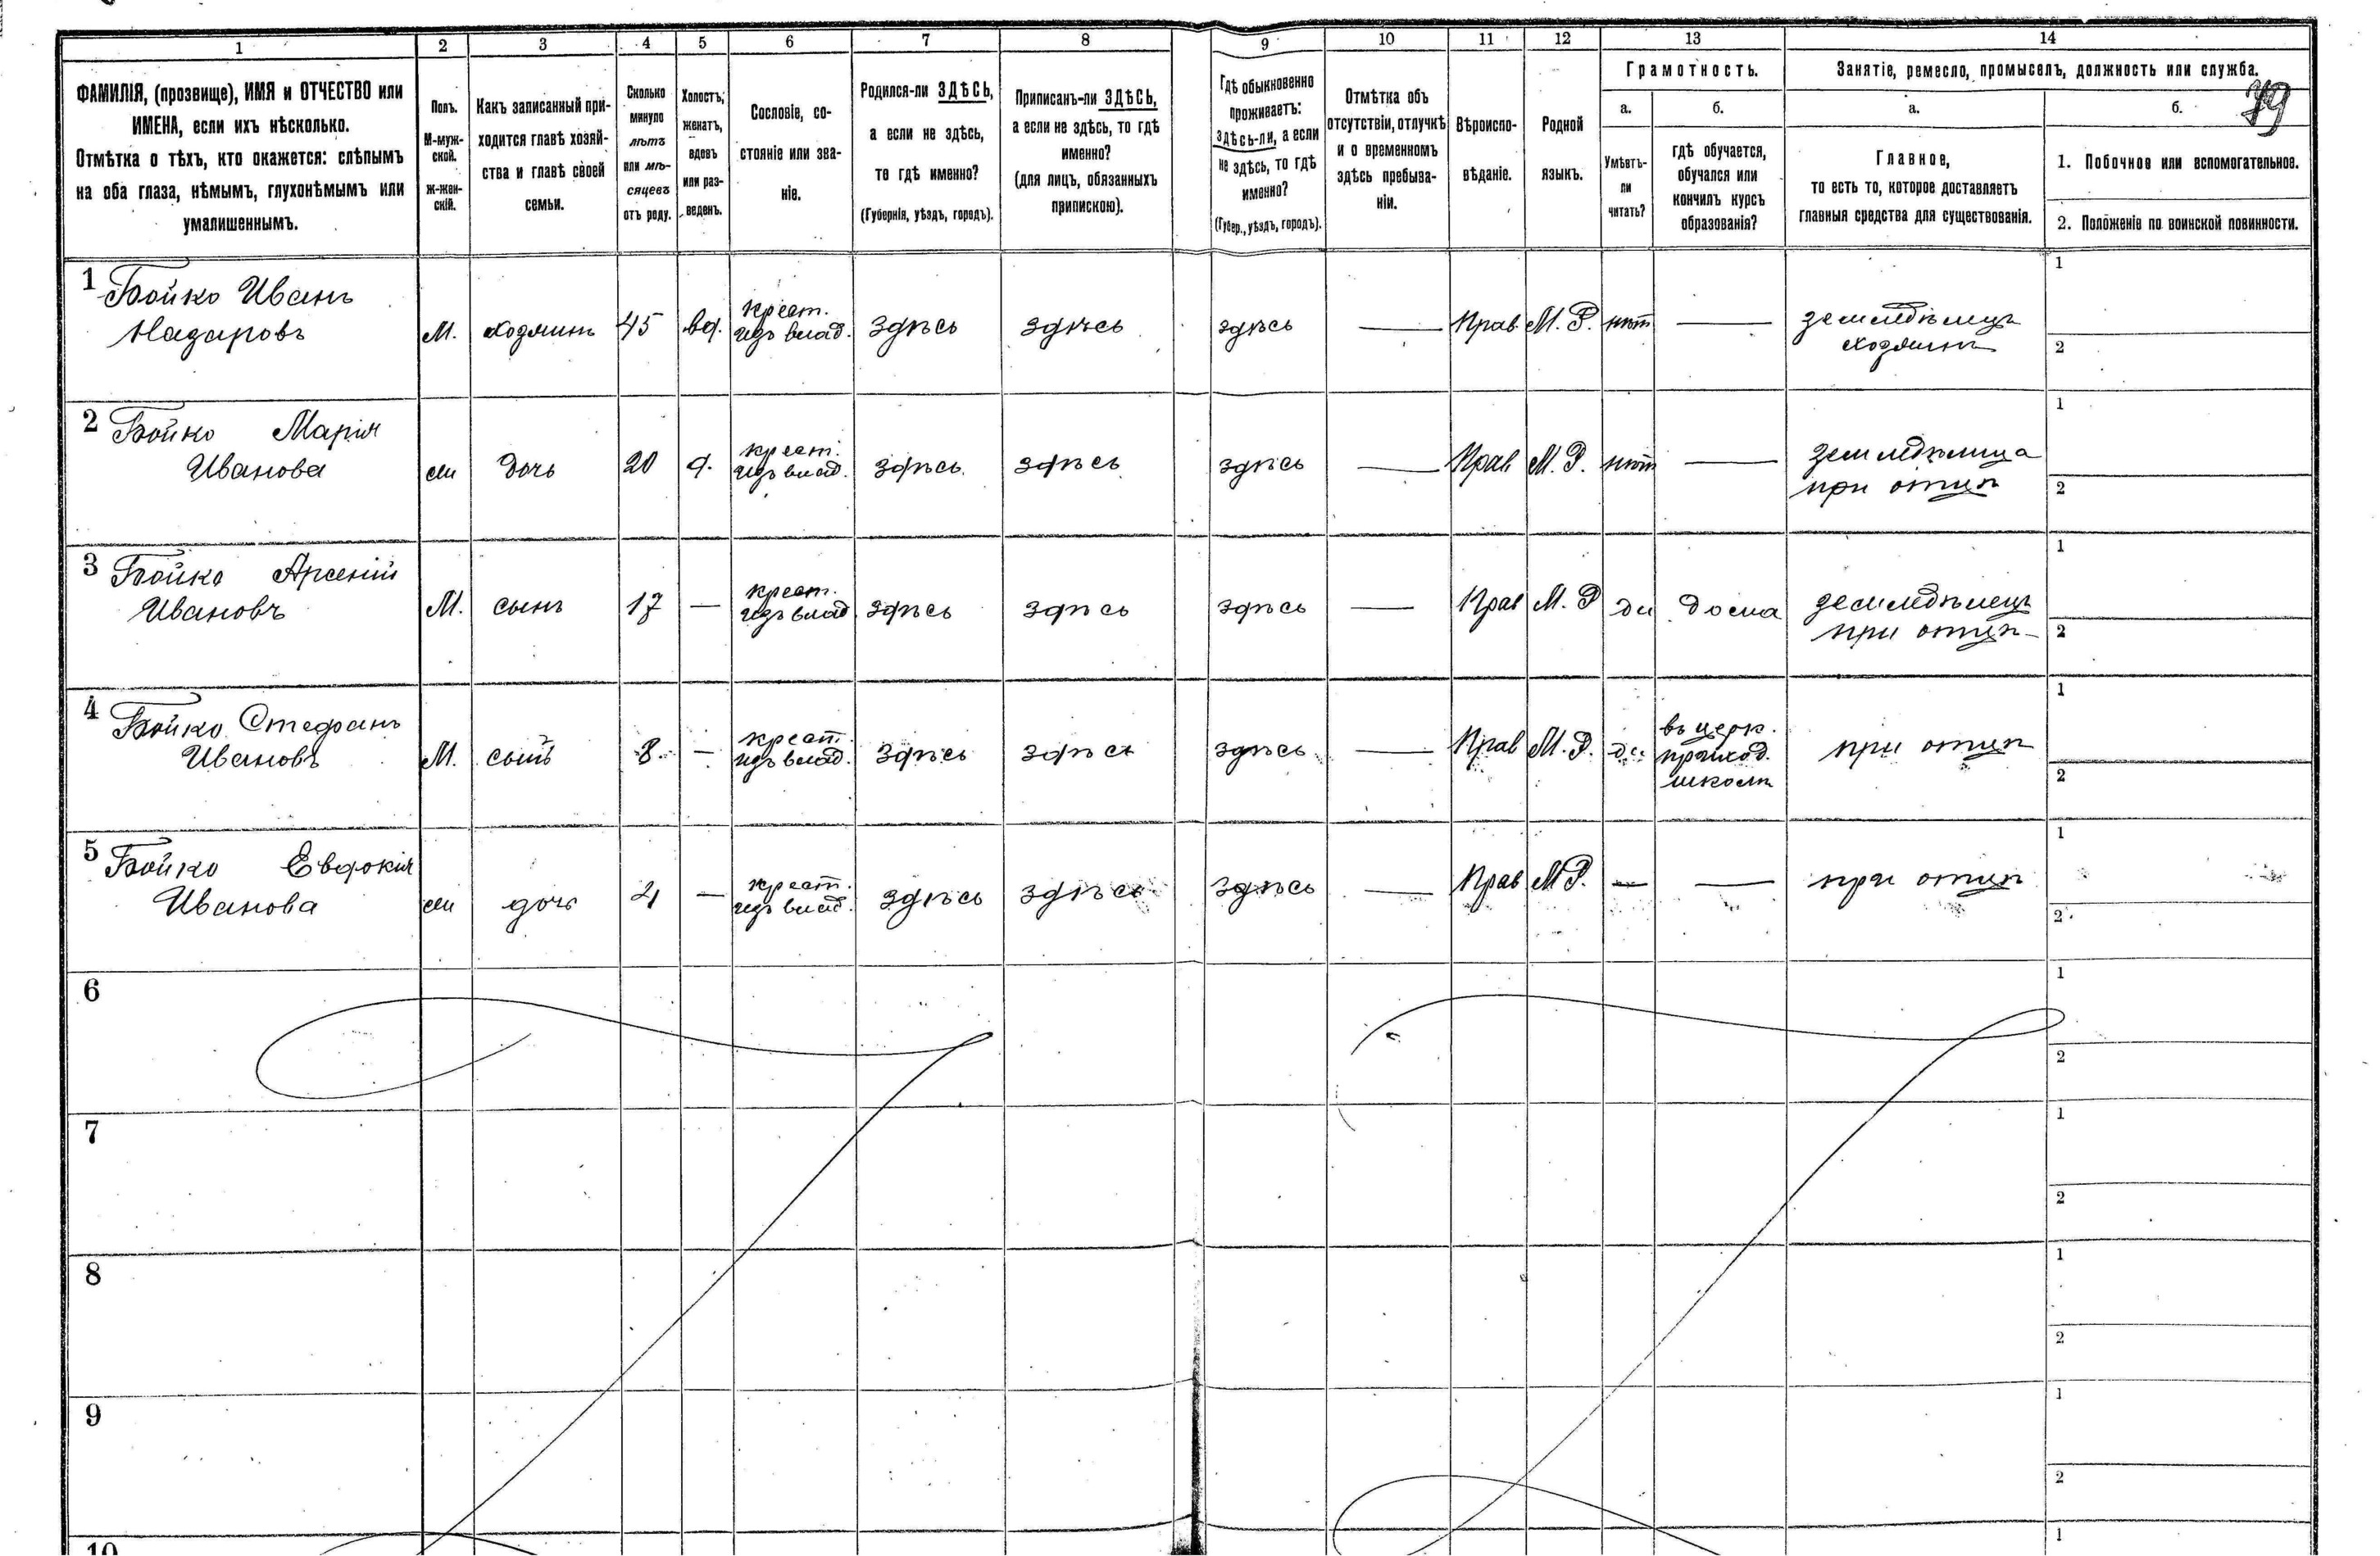 1 2 3 4 5 6 7 8 9 10 11 12 13 14
ФАМИЛІЯ, (прозвище), ИМЯ и ОТЧЕСТВО или
ИМЕНА, если ихъ нѣсколько.
Отмѣтка о тѣхъ, кто окажется: слѣпымъ
на оба глаза, нѣмымъ, глухонѣмымъ или
умалишеннымъ.
Полъ.
М-муж-
ской.
Ж-жен-
скій.
Какъ записанный при-
ходится главѣ хозяй-
ства и главѣ своей
семьи.
Сколько
минуло
лѣтъ
или мѣ-
сяцевъ
отъ роду.
Холостъ,
женатъ,
вдовъ
или раз-
веденъ.
Сословіе, со-
стояніе или зва-
ніе.
Родился-ли ЗДѢСЬ,
а если не здѣсь,
то гдѣ именно?
(Губернія, уѣздъ, городъ).
Приписанъ-ли ЗДѢСЬ,
а если не здѣсь, то гдѣ
именно?
(для лицъ, обязанныхъ
припискою).
Гдѣ обыкновенно
проживаетъ:
здѣсь-ли, а если
не здѣсь, то гдѣ
именно?
(Губер., уѣздъ, городъ).
Отмѣтка объ
отсутствіи, отлучкѣ
и о временномъ
здѣсь пребыва-
ніи.
Вѣроиспо-
вѣданіе.
Родной
языкъ.
Грамотность.
а.
Умѣетъ-
ли
читать?
б.
гдѣ обучается,
обучался или
кончилъ курсъ
образованія?
Занятіе, ремесло, промыселъ, должность или служба.
а.
Главное,
то есть то, которое доставляетъ
главныя средства для существованія.
б.
79
1. Побочное или вспомогательное.
2. Положеніе по воинской повинности.
1 Бойко Иванъ
Назаровъ
М. хозяинъ 45 вд. крест.
изъ влад. здѣсь здѣсь здѣсь — Прав М. Р. нѣтъ — земледѣлецъ
хозяинъ
1
2
2 Бойко Марія
Иванова
ж дочь 20 д. крест.
изъ влад. здѣсь здѣсь здѣсь — Прав М. Р. нѣтъ — земледѣлица
при отцѣ
1
2
3 Бойко Арсеній
Ивановъ
М. сынъ 17 — крест.
изъ влад. здѣсь здѣсь здѣсь — Прав М. Р да дома земледѣлецъ
при отцѣ
1
2
4 Бойко Стефанъ
Ивановъ
М. сынъ 8 — крест.
изъ влад. здѣсь здѣсь здѣсь — Прав М. Р. да въ церк.
приход.
школѣ
при отцѣ
1
2
5 Бойко Евдокія
Иванова
ж дочь 4 — крест.
изъ влад. здѣсь здѣсь здѣсь — Прав М Р. — — при отцѣ
1
2
6
1
2
7
1
2
8
1
2
9
1
2
10
1